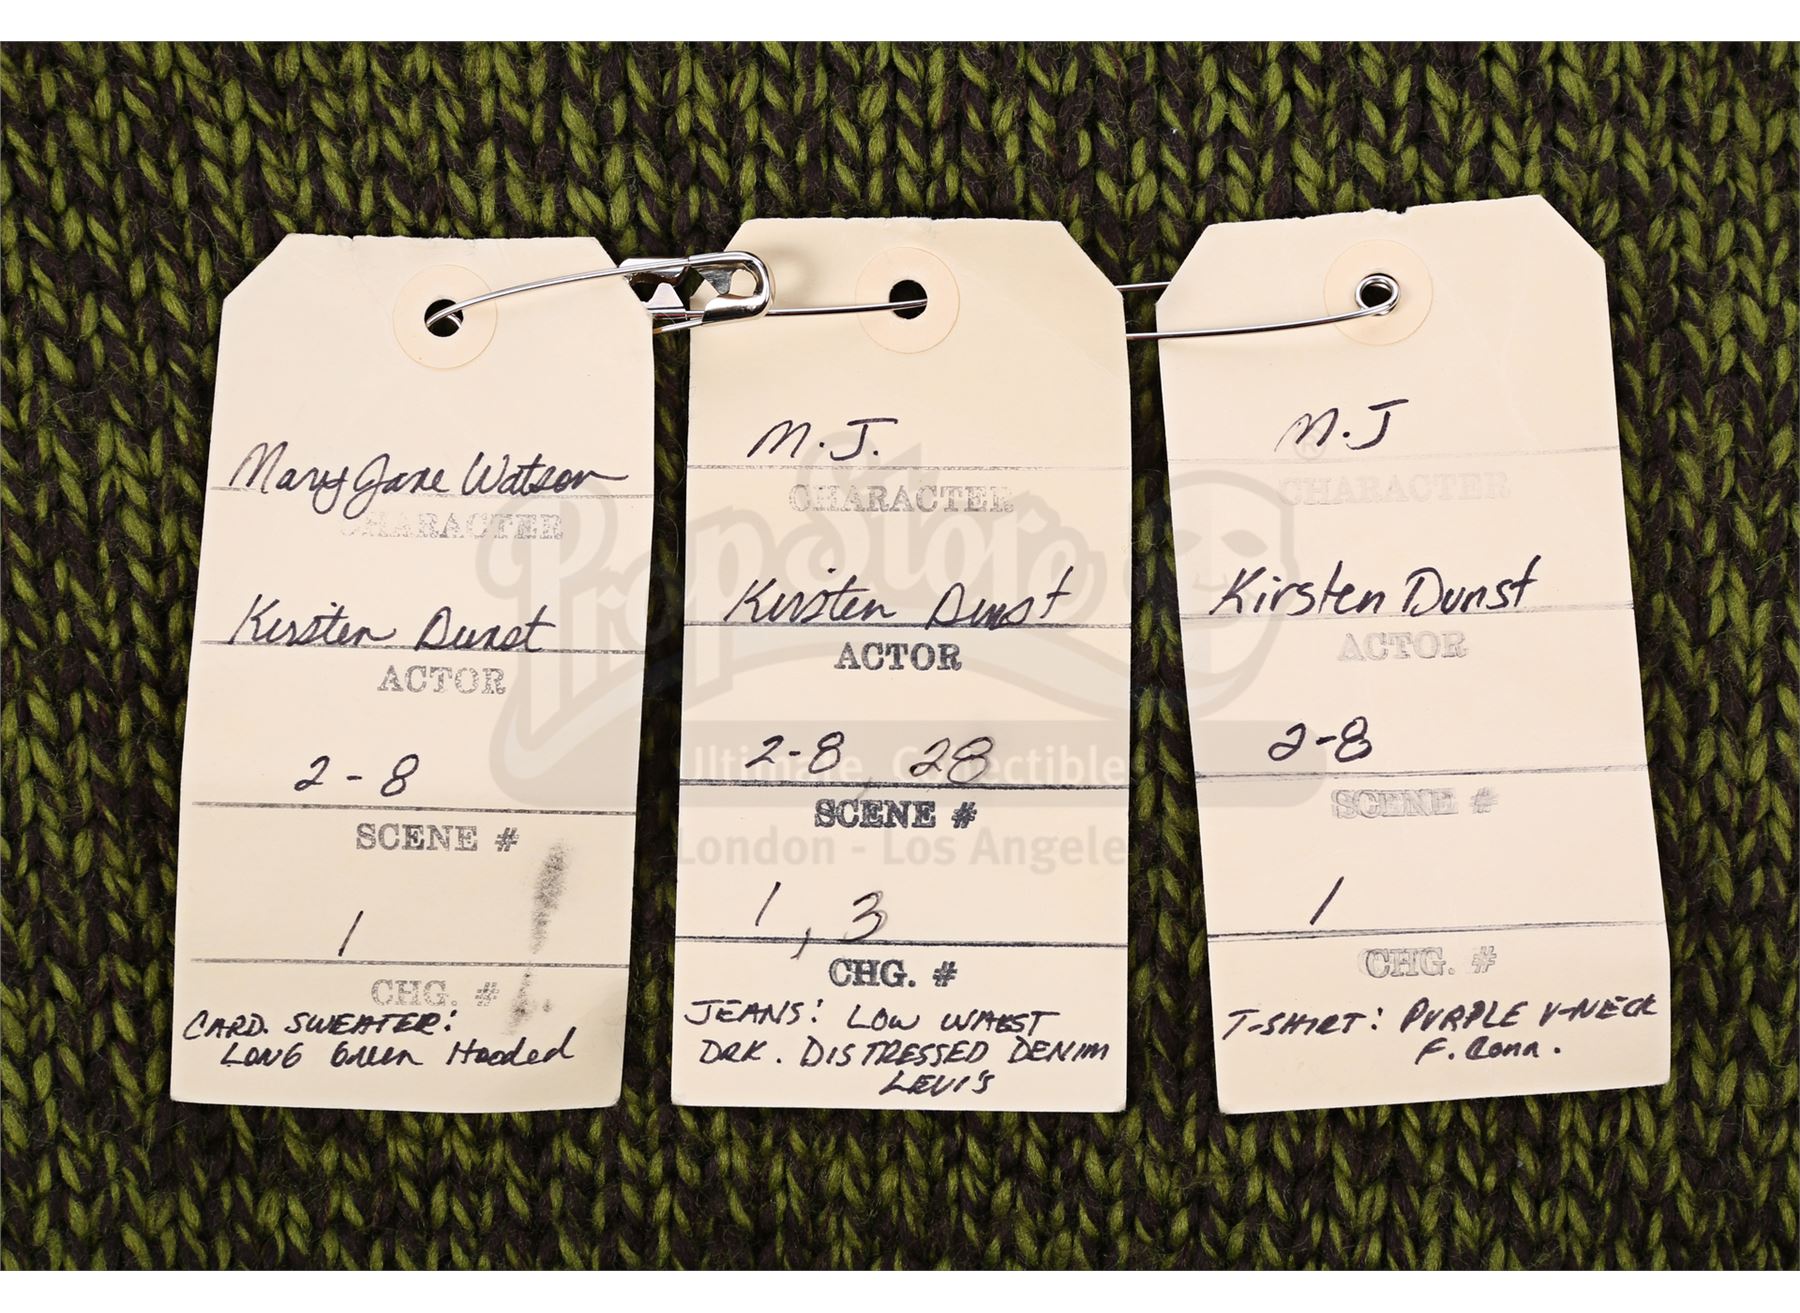 Mary Jane Watson
CHARACTER
Kirsten Dunst
ACTOR
2-8
SCENE #
1
CHG. #
CARD. SWEATER:
LONG Green Hooded
M.J.
CHARACTER
Kirsten Dunst
ACTOR
2-8, 28
SCENE #
1, 3
CHG. #
JEANS: LOW WAEST
DRK. DISTRESSED DENIM
LEVI'S
M.J
CHARACTER
Kirsten Dunst
ACTOR
2-8
SCENE #
1
CHG. #
T-SHIRT: PURPLE V-NECK
F. Conn.
PropStore
Ultimate Collectibles
London - Los Angeles